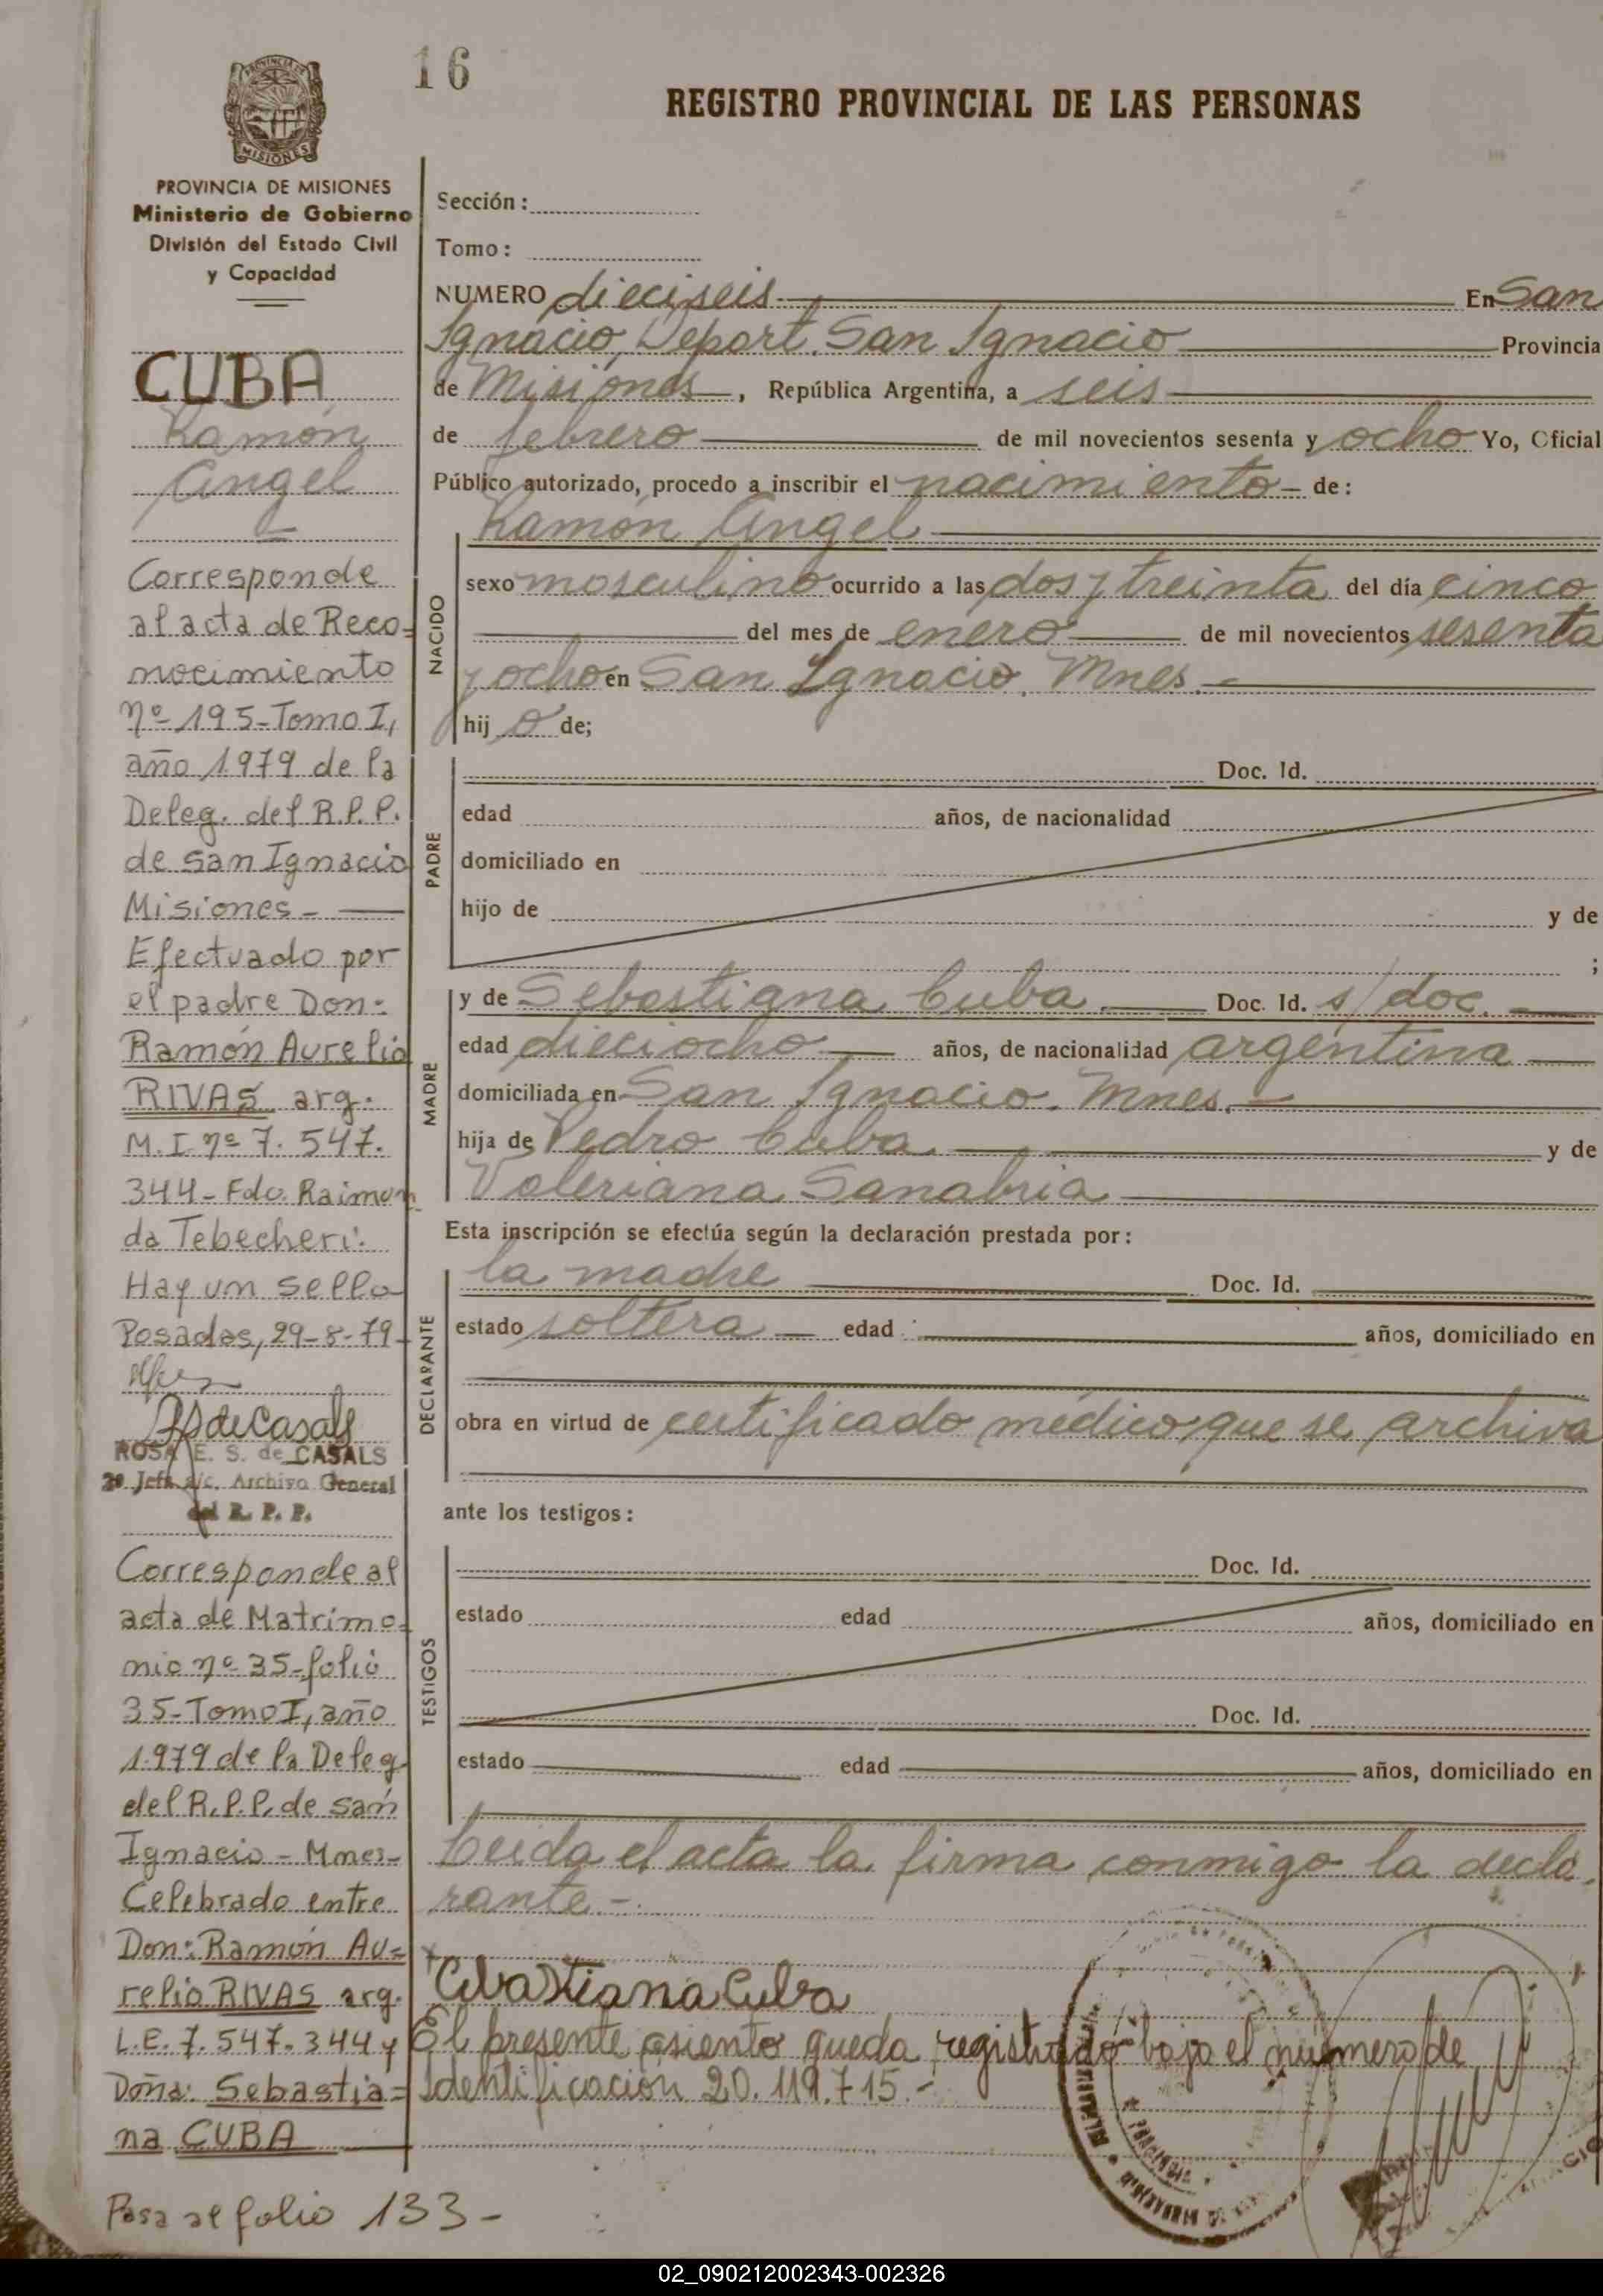 16
REGISTRO PROVINCIAL DE LAS PERSONAS
PROVINCIA DE MISIONES
Ministerio de Gobierno
División del Estado Civil
y Capacidad
CUBA
Ramón
Angel
Corresponde
al acta de Reco=
nocimiento
nº 195-Tomo I,
año 1979 de la
Deleg. del R.P.P.
de San Ignacio
Misiones-
Efectuado por
el padre Don:
Ramón Aurelio
RIVAS arg.
M.I nº 7.547.
344- Fdo. Raimun
da Tebecheri.
Hay un sello
Posadas, 29-8-79-
ROSA E. S. de CASALS
2º Jefa a/c. Archivo General
del R. P. P.
Corresponde al
acta de Matrimo=
nio nº 35-folio
35-Tomo I, año
1.979 de la Deleg.
del R.P.P. de San
Ignacio - Mnes-
Celebrado entre
Don: Ramón Au=
relio RIVAS arg.
L.E. 7.547.344 y
Doña: Sebastia=
na CUBA
Pasa al folio 133-
Sección:
Tomo:
NUMERO dieciseis En San
Ignacio, Depart. San Ignacio Provincia
de Misiones, República Argentina, a seis
de febrero de mil novecientos sesenta y ocho Yo, Oficial
Público autorizado, procedo a inscribir el nacimiento - de:
NACIDO
Ramón Angel
sexo masculino ocurrido a las dos y treinta del día cinco
del mes de enero de mil novecientos sesenta
y ocho en San Ignacio, Mnes.-
hij o de;
PADRE
Doc. Id.
edad años, de nacionalidad
domiciliado en
hijo de y de
;
MADRE
y de Sebastiana Cuba. Doc. Id. s/doc.
edad dieciocho años, de nacionalidad argentina
domiciliada en San Ignacio. Mnes.-
hija de Pedro Cuba y de
Valeriana Sanabria
Esta inscripción se efectúa según la declaración prestada por:
DECLARANTE
la madre Doc. Id.
estado soltera edad años, domiciliado en
obra en virtud de certificado médico que se archiva
ante los testigos:
TESTIGOS
Doc. Id.
estado edad años, domiciliado en
Doc. Id.
estado edad años, domiciliado en
Leida el acta la firma conmigo la decla
rante.-
Cebastiana Cuba
El presente asiento queda registrado bajo el número de
Identificación 20.119.715.-
02_090212002343-002326